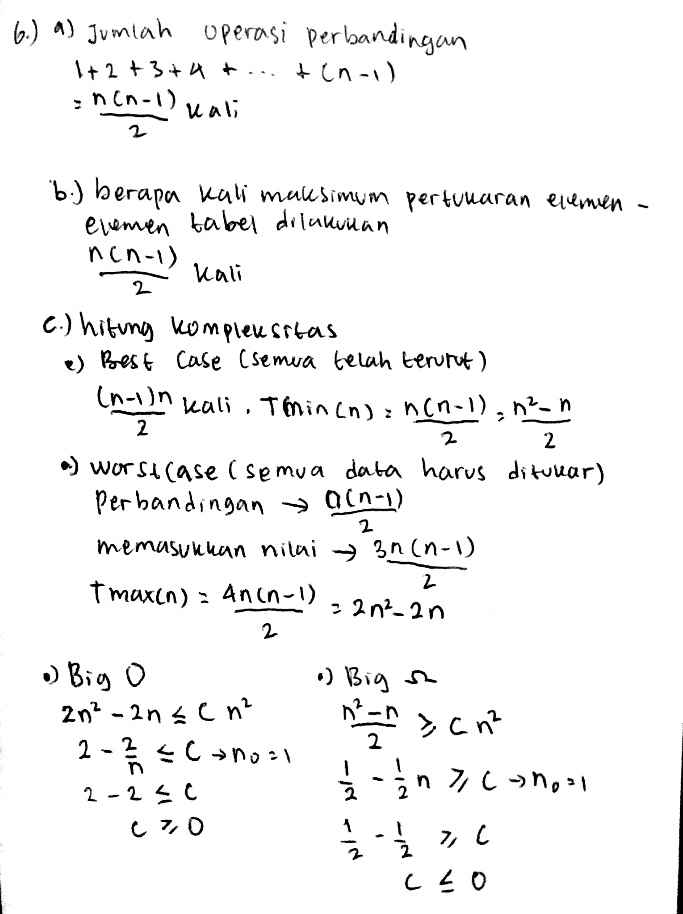 6.) a) Jumlah operasi perbandingan
1+2+3+4+...+(n-1)
= n(n-1)/2 kali
b.) berapa kali maksimum pertukaran elemen -
elemen tabel dilakukan
n(n-1)/2 kali
c.) hitung kompleksitas
•) Best Case (semua telah terurut)
(n-1)n/2 kali, Tmin(n) = n(n-1)/2 = n²-n/2
•) worst case (semua data harus ditukar)
Perbandingan → n(n-1)/2
memasukkan nilai → 3n(n-1)/2
Tmax(n) = 4n(n-1)/2 = 2n²-2n
•) Big O
2n² - 2n ≤ C n²
2 - 2/n ≤ C → n₀=1
2 - 2 ≤ C
C ≥ 0
•) Big Ω
n²-n/2 ≥ C n²
1/2 - 1/2 n ≥ C → n₀=1
1/2 - 1/2 ≥ C
C ≤ 0